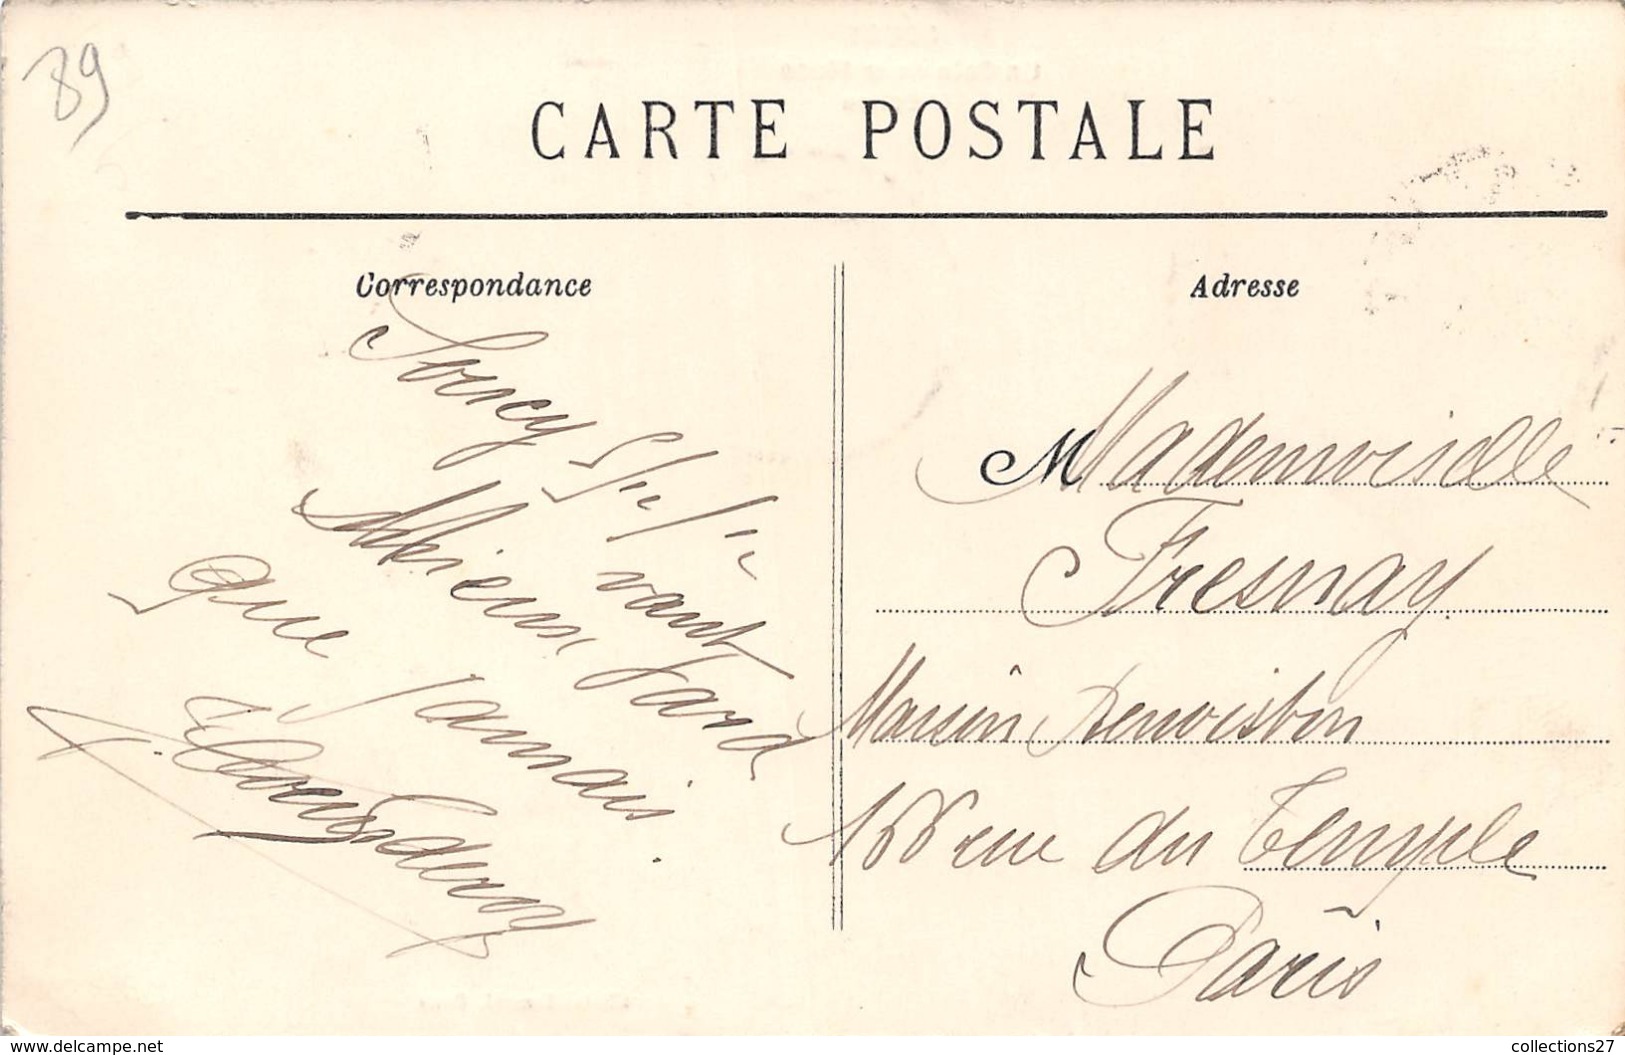 89
CARTE POSTALE
Correspondance
5/12/12
Mieux vaut tard
que jamais.
Adresse
M Mademoiselle
Fresnay
Maison
166 rue du Temple
Paris
www.delcampe.net
collections27